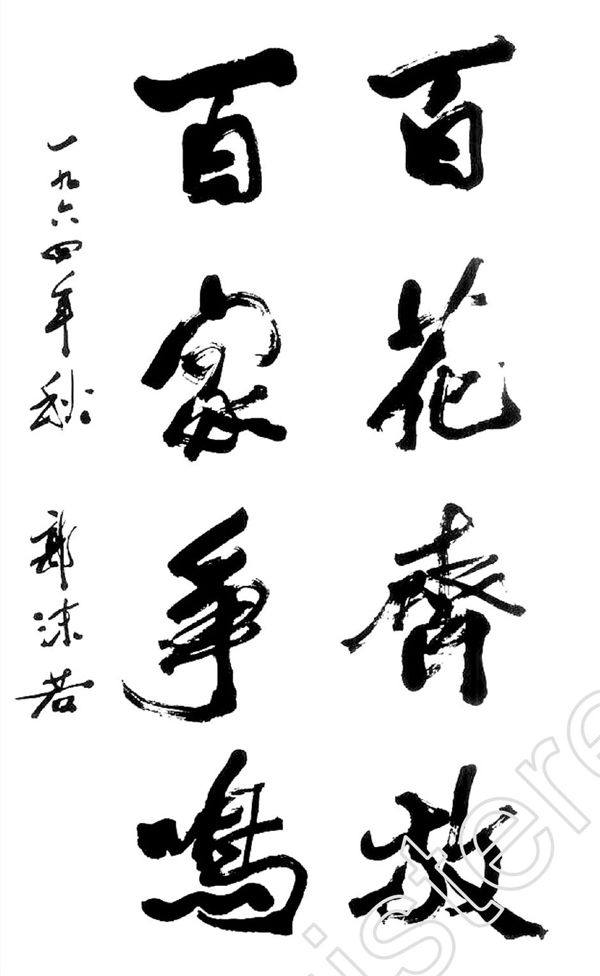 百花齊放
百家爭鳴
一九六四年秋 郭沫若
istere